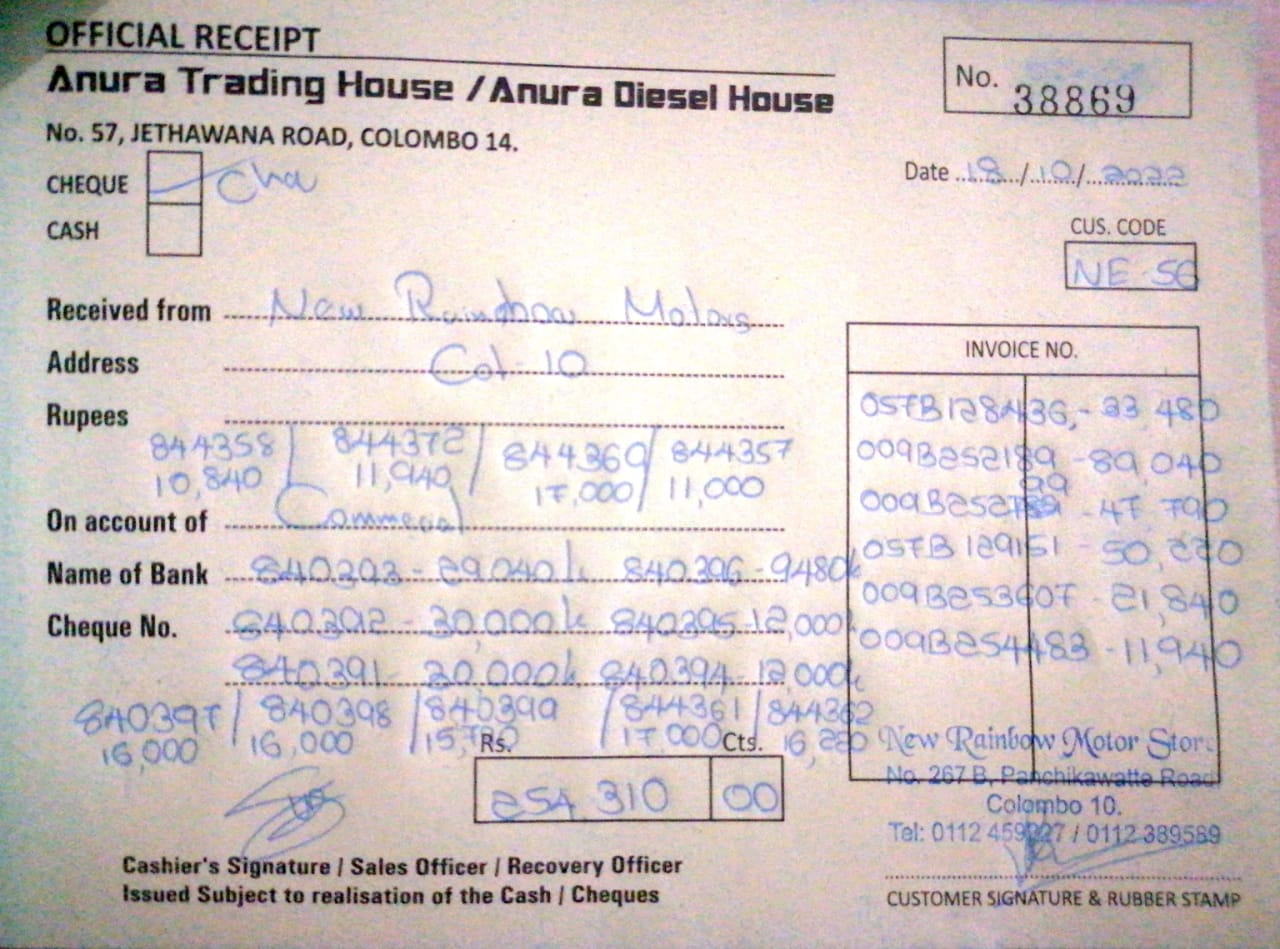 OFFICIAL RECEIPT
Anura Trading House / Anura Diesel House
No. 57, JETHAWANA ROAD, COLOMBO 14.
No. 38869
CHEQUE Cha
CASH
Date 18/10/2022
CUS. CODE
NE 56
Received from New Rainbow Motors
Address Col-10
Rupees
844358 / 844372 / 844360 / 844357
10,840 11,940 17,000 11,000
On account of Commecial
Name of Bank 840393 - 29,040/- 840396 - 9480/-
Cheque No. 840392 - 30,000/- 840395 - 12,000/-
840391 - 30,000/- 840394 - 12,000/-
840397 / 840398 / 840399 / 844361 / 844362
16,000 16,000 15,790 17,000 16,220
INVOICE NO.
057B128436 - 33,480
009B252189 - 89,040
99
- 47,790
057B129151 - 50,220
009B253607 - 21,840
009B254483 - 11,940
Rs. Cts.
254,310 00
New Rainbow Motor Store
No. 267 B, Panchikawatta Road
Colombo 10.
Tel: 0112 / 0112 389589
Cashier's Signature / Sales Officer / Recovery Officer
Issued Subject to realisation of the Cash / Cheques
CUSTOMER SIGNATURE & RUBBER STAMP